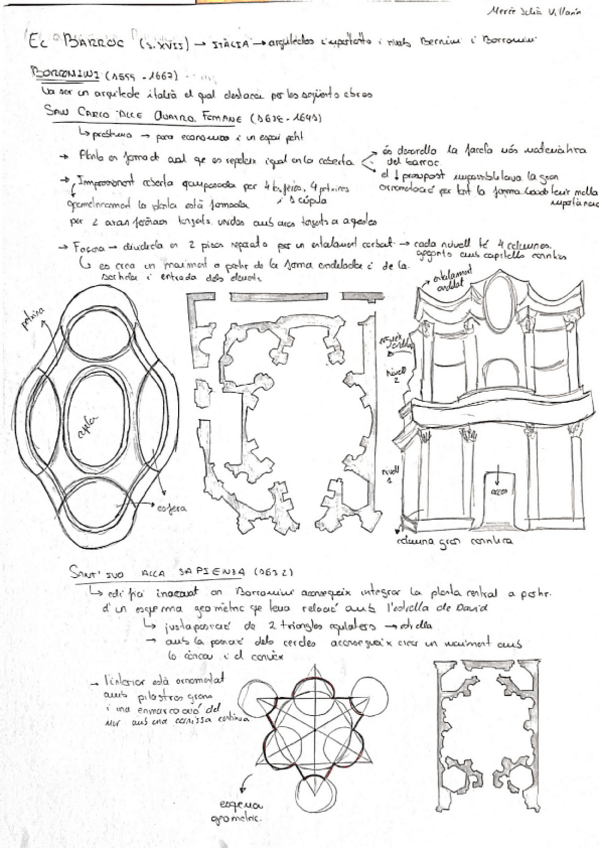 Mercè Julià Villarín
EL BARROC (s. XVII) → ITÀLIA → arquitectes importants i rivals Bernini i Borromini
BORROMINI (1599 - 1667)
Va ser un arquitecte italià el qual destaca per les següents obres
SAN CARLO ALLE QUATRO FONTANE (1638 - 1641)
↳ → para economica i un espai petit
→ Planta en forma de oval que es repeteix igual en la coberta
és desarrolla la faceta més matemàtica
del barroc
el ↓ pressupost impossibilitava la gran
ornamentació per tant la forma
importància
→ Impressionant coberta composada per 4 esferes, 4 petxines
i 1 cúpula
geomètricament la planta està formada
per 2 units amb arcs tangents a aquestes
→ Façana → dividida en 2 pisos separats per un entalament corbat → cada nivell té 4 columnes
gegants amb capitells corintis
↳ es crea un moviment a partir de la forma ondulada i de la
sortida i entrada dels elements
petxina
cúpula
esfera
entalament
ondulat
nivell
2
nivell
1
accés
columna gran corintia
SANT' IVO ALLA SAPIENZA (1632)
↳ edifici inacabat on Borromini aconsegueix integrar la planta central a partir
d'un esquema geomètric que té relació amb l'estrella de David
↳ juxtaposició de 2 triangles equilàters → estrella
→ amb la posició dels cercles aconsegueix crear un moviment amb
lo còncau i el convex
→ l'interior està ornamentat
amb pilastres grans
i una del
mur amb una cornissa contínua
esquema
geomètric.